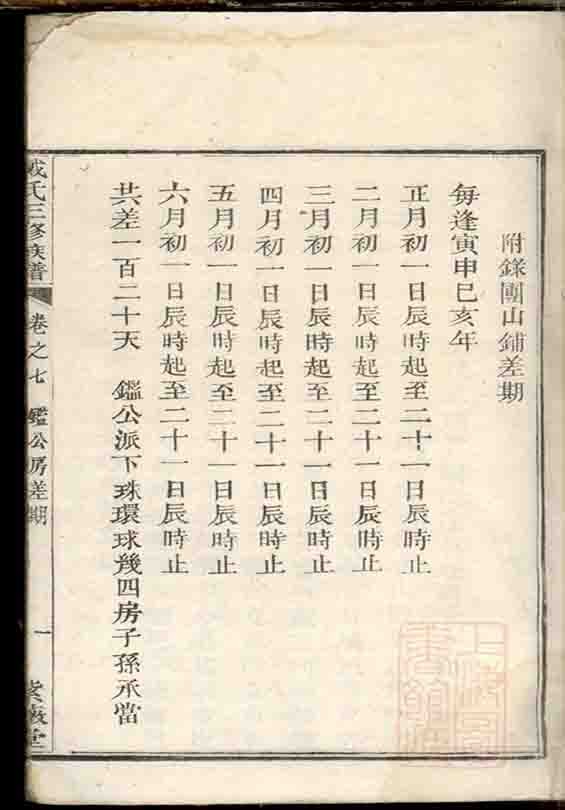 附錄團山鋪差期
每逢寅申巳亥年
正月初一日辰時起至二十一日辰時止
二月初一日辰時起至二十一日辰時止
三月初一日辰時起至二十一日辰時止
四月初一日辰時起至二十一日辰時止
五月初一日辰時起至二十一日辰時止
六月初一日辰時起至二十一日辰時止
共差一百二十天　鑑公派下珠環球幾四房子孫承當
氏三修族譜　卷之七　鑑公房差期　一　堂
上海圖書館藏